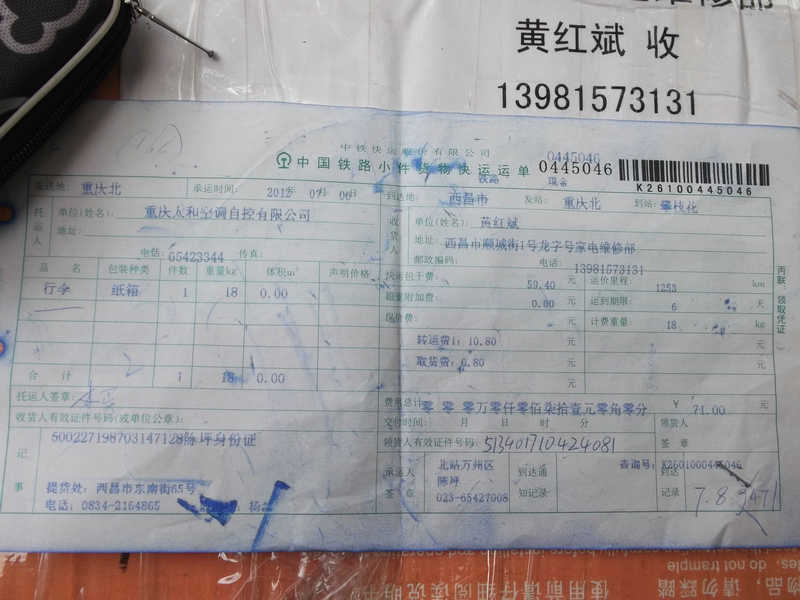 黄红斌 收
13981573131
中铁快运股份有限公司
中国铁路小件货物快运运单 0445046
0445046
K26100445046
发送地: 重庆北 承运时间: 2012年 07月 06日 到达地: 西昌市 发站: 重庆北 到站: 攀枝花
托运人 单位(姓名): 重庆大和空调自控有限公司 收货人 单位(姓名): 黄红斌
地址: 地址: 西昌市顺城街1号龙字号家电维修部
电话: 65423344 传真: 邮政编码: 电话: 13981573131
品 名 包装种类 件数 重量kg 体积m³ 声明价格 快运包干费: 59.40 元 运价里程: 1253 km
行李 纸箱 1 18 0.00 超重附加费: 0.00 元 运到期限: 6 天
保价费: 元 计费重量: 18 kg
转运费1: 10.80 元 元
取货费: 0.80 元 元
合 计 1 18 0.00
托运人签章: 费用总计: 零 零 零万零仟零佰柒拾壹元零角零分 ¥ 71.00
收货人有效证件号码(或单位公章): 交付时间: 月 日 时 分 领货人
500227198703147128陈坪身份证 领货人有效证件号码: 513401710424081 签 章
记事 承运人 北站万州区 到达通 查询号: K2601000445046
陈坪 到达
提货处: 西昌市东南街65号 签 章 023-65427008 知记录 记录 7.8.
电话: 0834-2164865 杨
丙联 领取凭证
使用前请仔细阅读说明书
物品, 请勿踩踏
do not trample